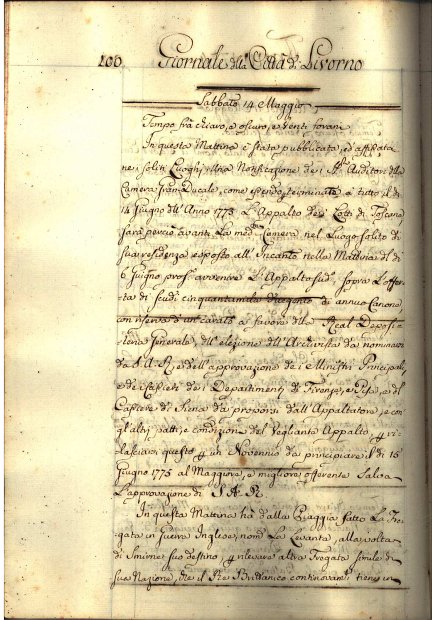 100 Giornale della Città di Livorno
Sabbato 14 Maggio
Tempo frà chiaro, e oscuro, e Venti forani
In questa Mattina è stata pubblicata, ed affissata
ne i soliti Luoghi altra Notificazione de i SS.ri Auditori della
Camera Gran Ducale, come essendo terminato a tutto il dì
14 Giugno dell'Anno 1775 L'Appalto de i Lotti di Toscana
sarà perciò avanti La med.ma Camera nel Luogo solito di
sua residenza esposto all'Incanto nella Mattina del dì
6 Giugno pross.o avvenire L'Appalto sud.o sopra L'offer-
ta di scudi cinquantamila di annuo Canone
con riserva d'un carato a favore della Real Deposi-
teria Generale, dell'elezione dell'Archivista da nominarsi
da S. A. R. e dell'approvazione de i Ministri Principali,
e de i Cassieri de i Dipartimenti di Firenze, e Pisa, e del
Cassiere di Siena da proporsi dall'Appaltatore, e con
gl'altri patti, e condizioni del Vegliante Appalto, p ri-
lasciarsi questo p un Novennio da principiare il dì 15
Giugno 1775 al Maggiore, e migliore offerente Salva
L'approvazione di S. A. R.
In questa Mattina ha dalla Spiaggia fatto La Fre-
gata in guerra Inglese, nom.ta La Levanta, alla volta
di Smirne suo destino, p rilevare altra Fregata simile di
sua Nazione, che il Re Brittanico continovam.te tiene in